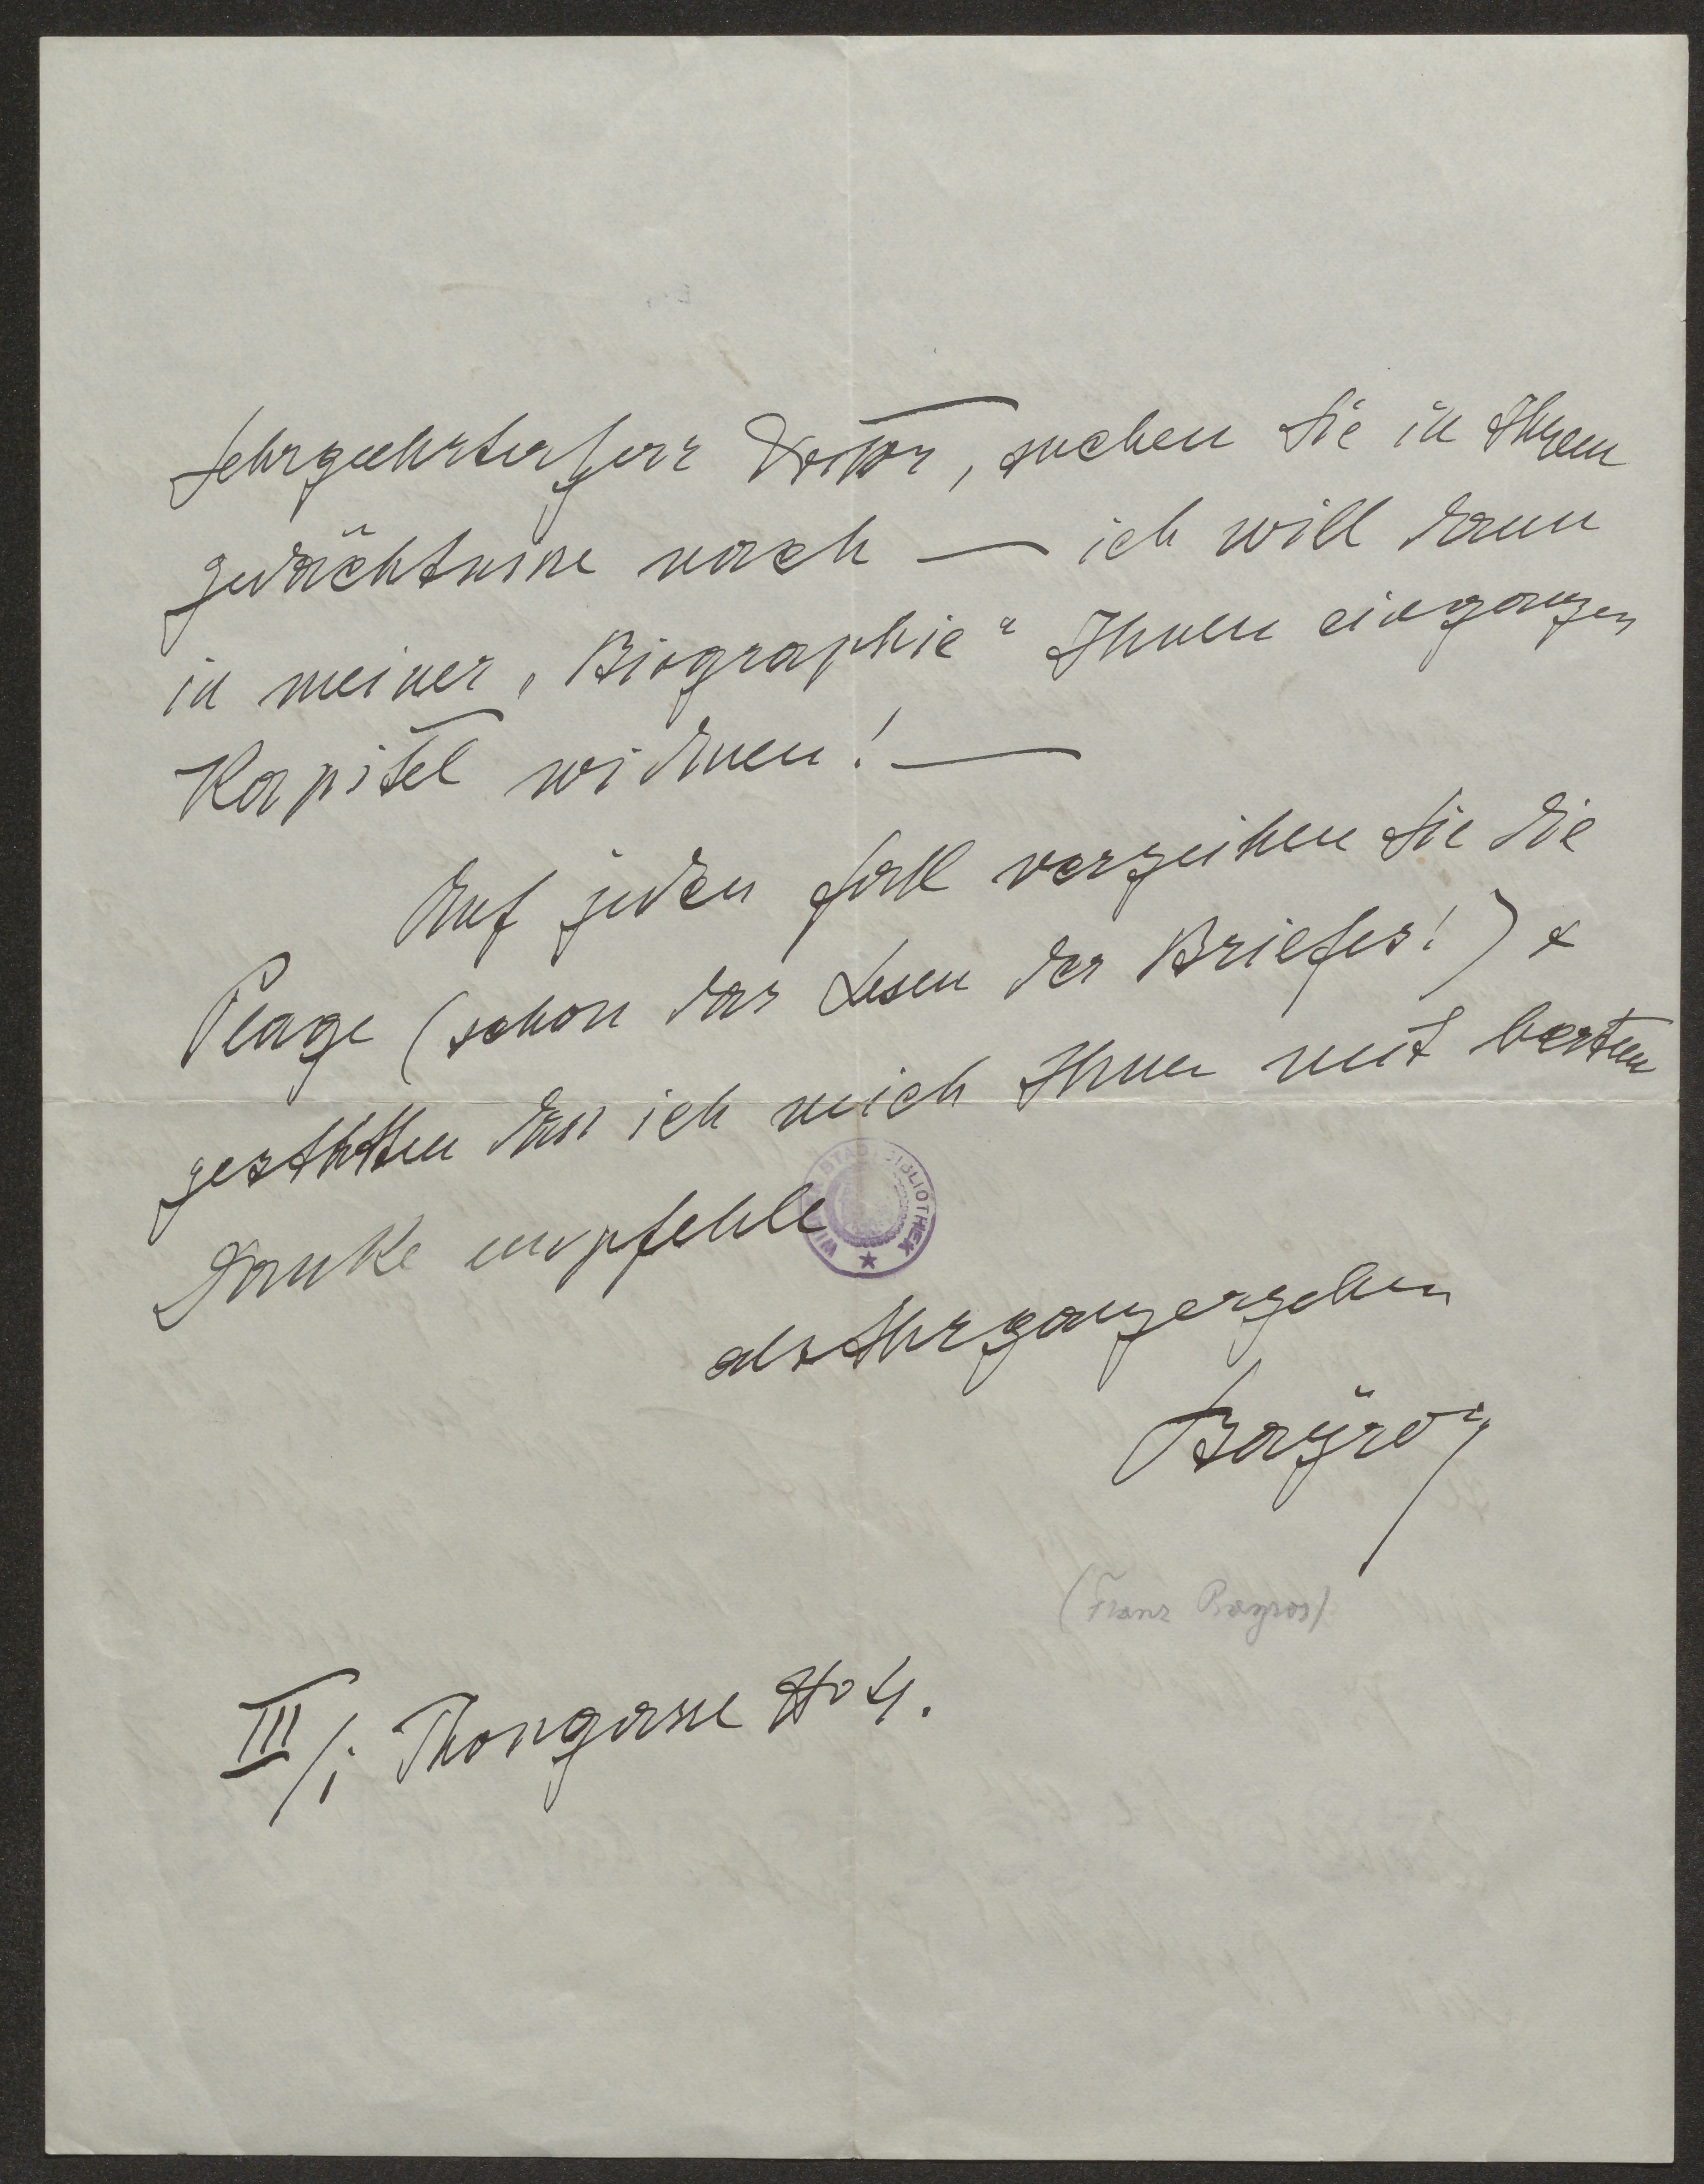 Sehrgeehrter Herr Doktor, suchen Sie in Ihrem
gedächtnisse nach — ich will dann
in meiner „Biographie“ Ihnen ein ganzes
Kapitel widmen! —
Auf jeden fall verzeihen Sie die
Plage (schon das Lesen des Briefes!) &
gestatten dass ich mich Ihnen mit bestem
Danke empfehle
WIENER STADTBIBLIOTHEK
als Ihr ganz ergeben
Bayros
(Franz Bayros)
III/1; Thongasse No 4.